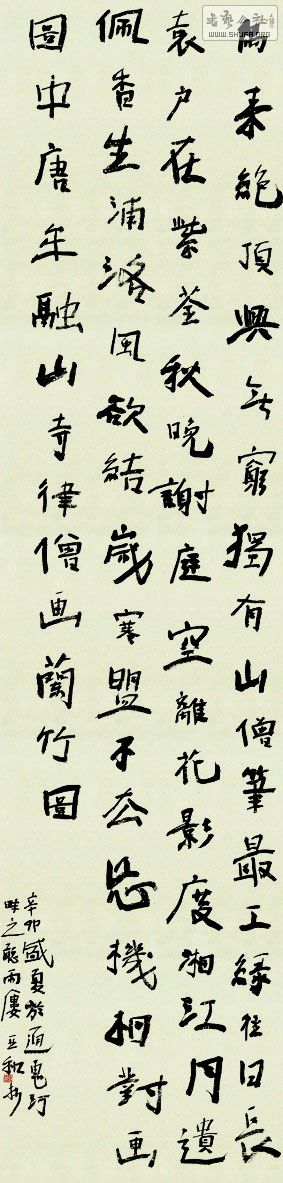 書藝公社
WWW.SHUFA.ORG
偶来絶頂興无窮獨有山僧筆最工緑徑日長
袁户在紫荃秋晚謝庭空離花影度湘江月遺
佩香生浦洛風欲結歲寒盟不去忘機相對画
圖中唐牟融山寺律僧画蘭竹圖
辛卯盛夏於通惠河
畔之聽雨廔